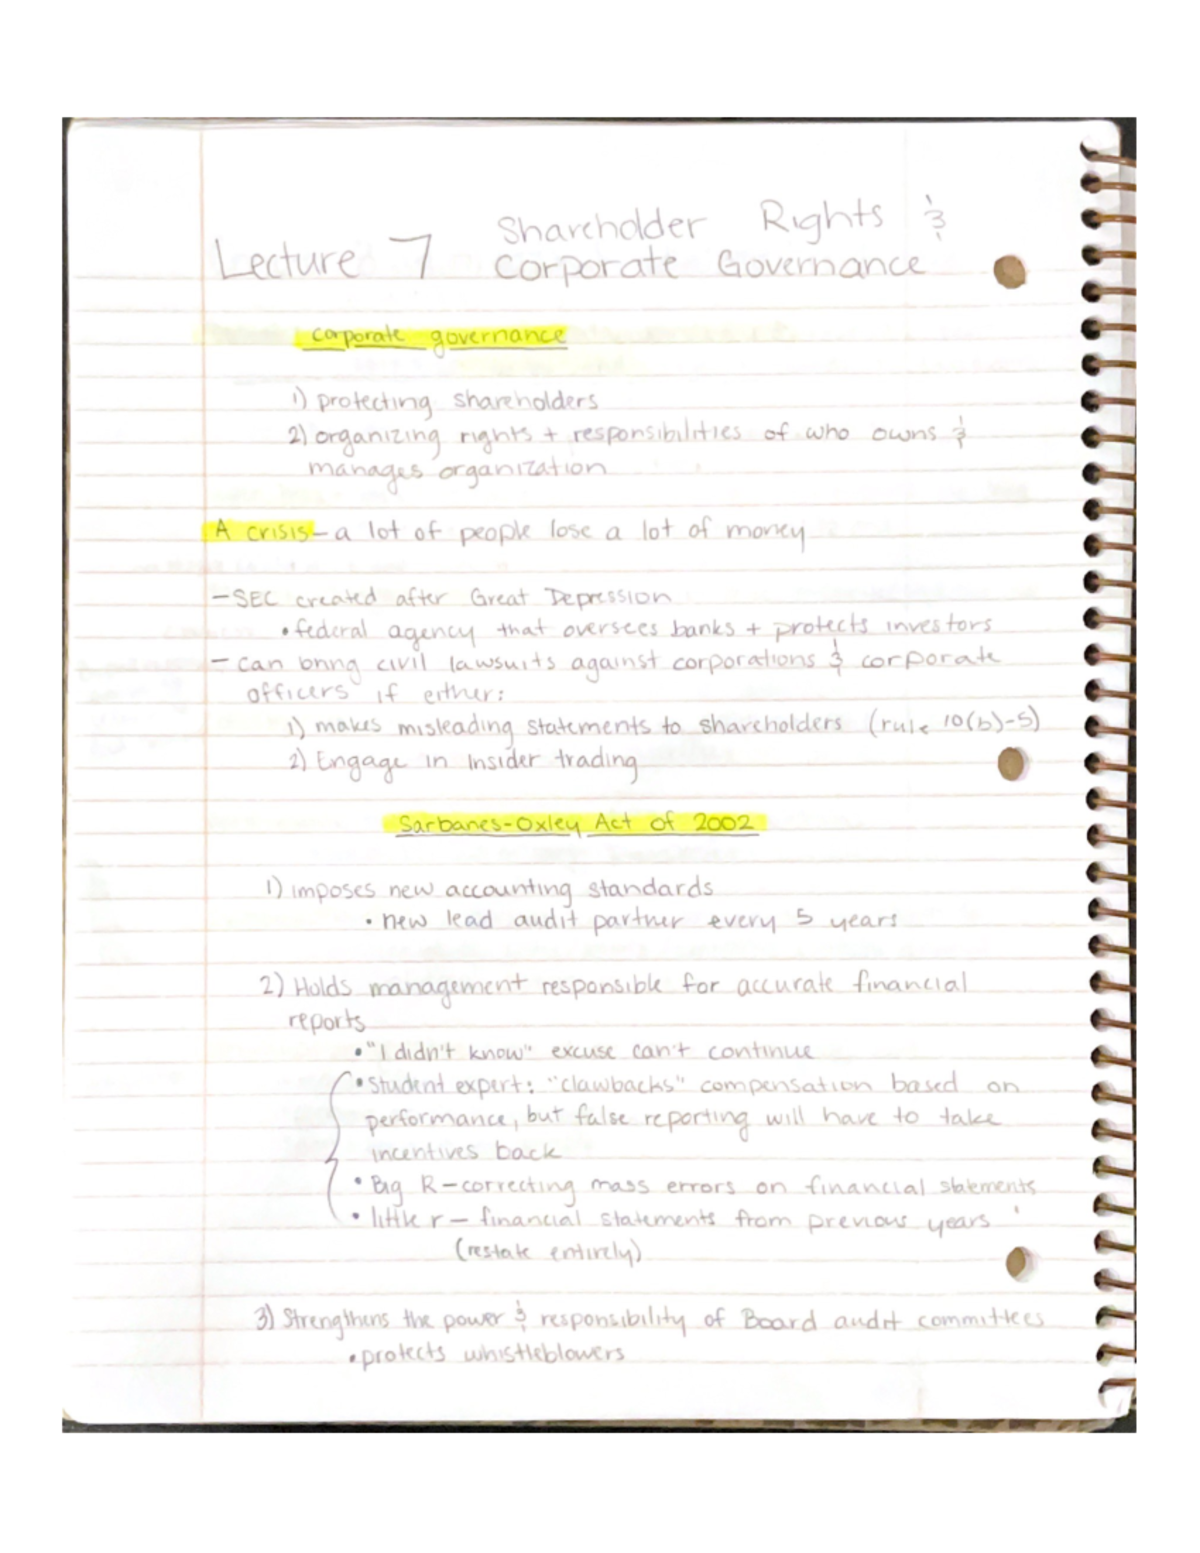 Shareholder Rights &
Lecture 7 Corporate Governance
corporate governance
1) protecting shareholders
2) organizing rights + responsibilities of who owns &
manages organization
A crisis - a lot of people lose a lot of money
- SEC created after Great Depression
• federal agency that oversees banks + protects investors
- can bring civil lawsuits against corporations & corporate
officers if either:
1) makes misleading statements to shareholders (rule 10(b)-5)
2) Engage in insider trading
Sarbanes-Oxley Act of 2002
1) imposes new accounting standards
• new lead audit partner every 5 years
2) Holds management responsible for accurate financial
reports
• "I didn't know" excuse can't continue
• Student expert: "clawbacks" compensation based on
performance, but false reporting will have to take
incentives back
• Big R - correcting mass errors on financial statements
• little r - financial statements from previous years
(restate entirely)
3) Strengthens the power & responsibility of Board audit committees
• protects whistleblowers